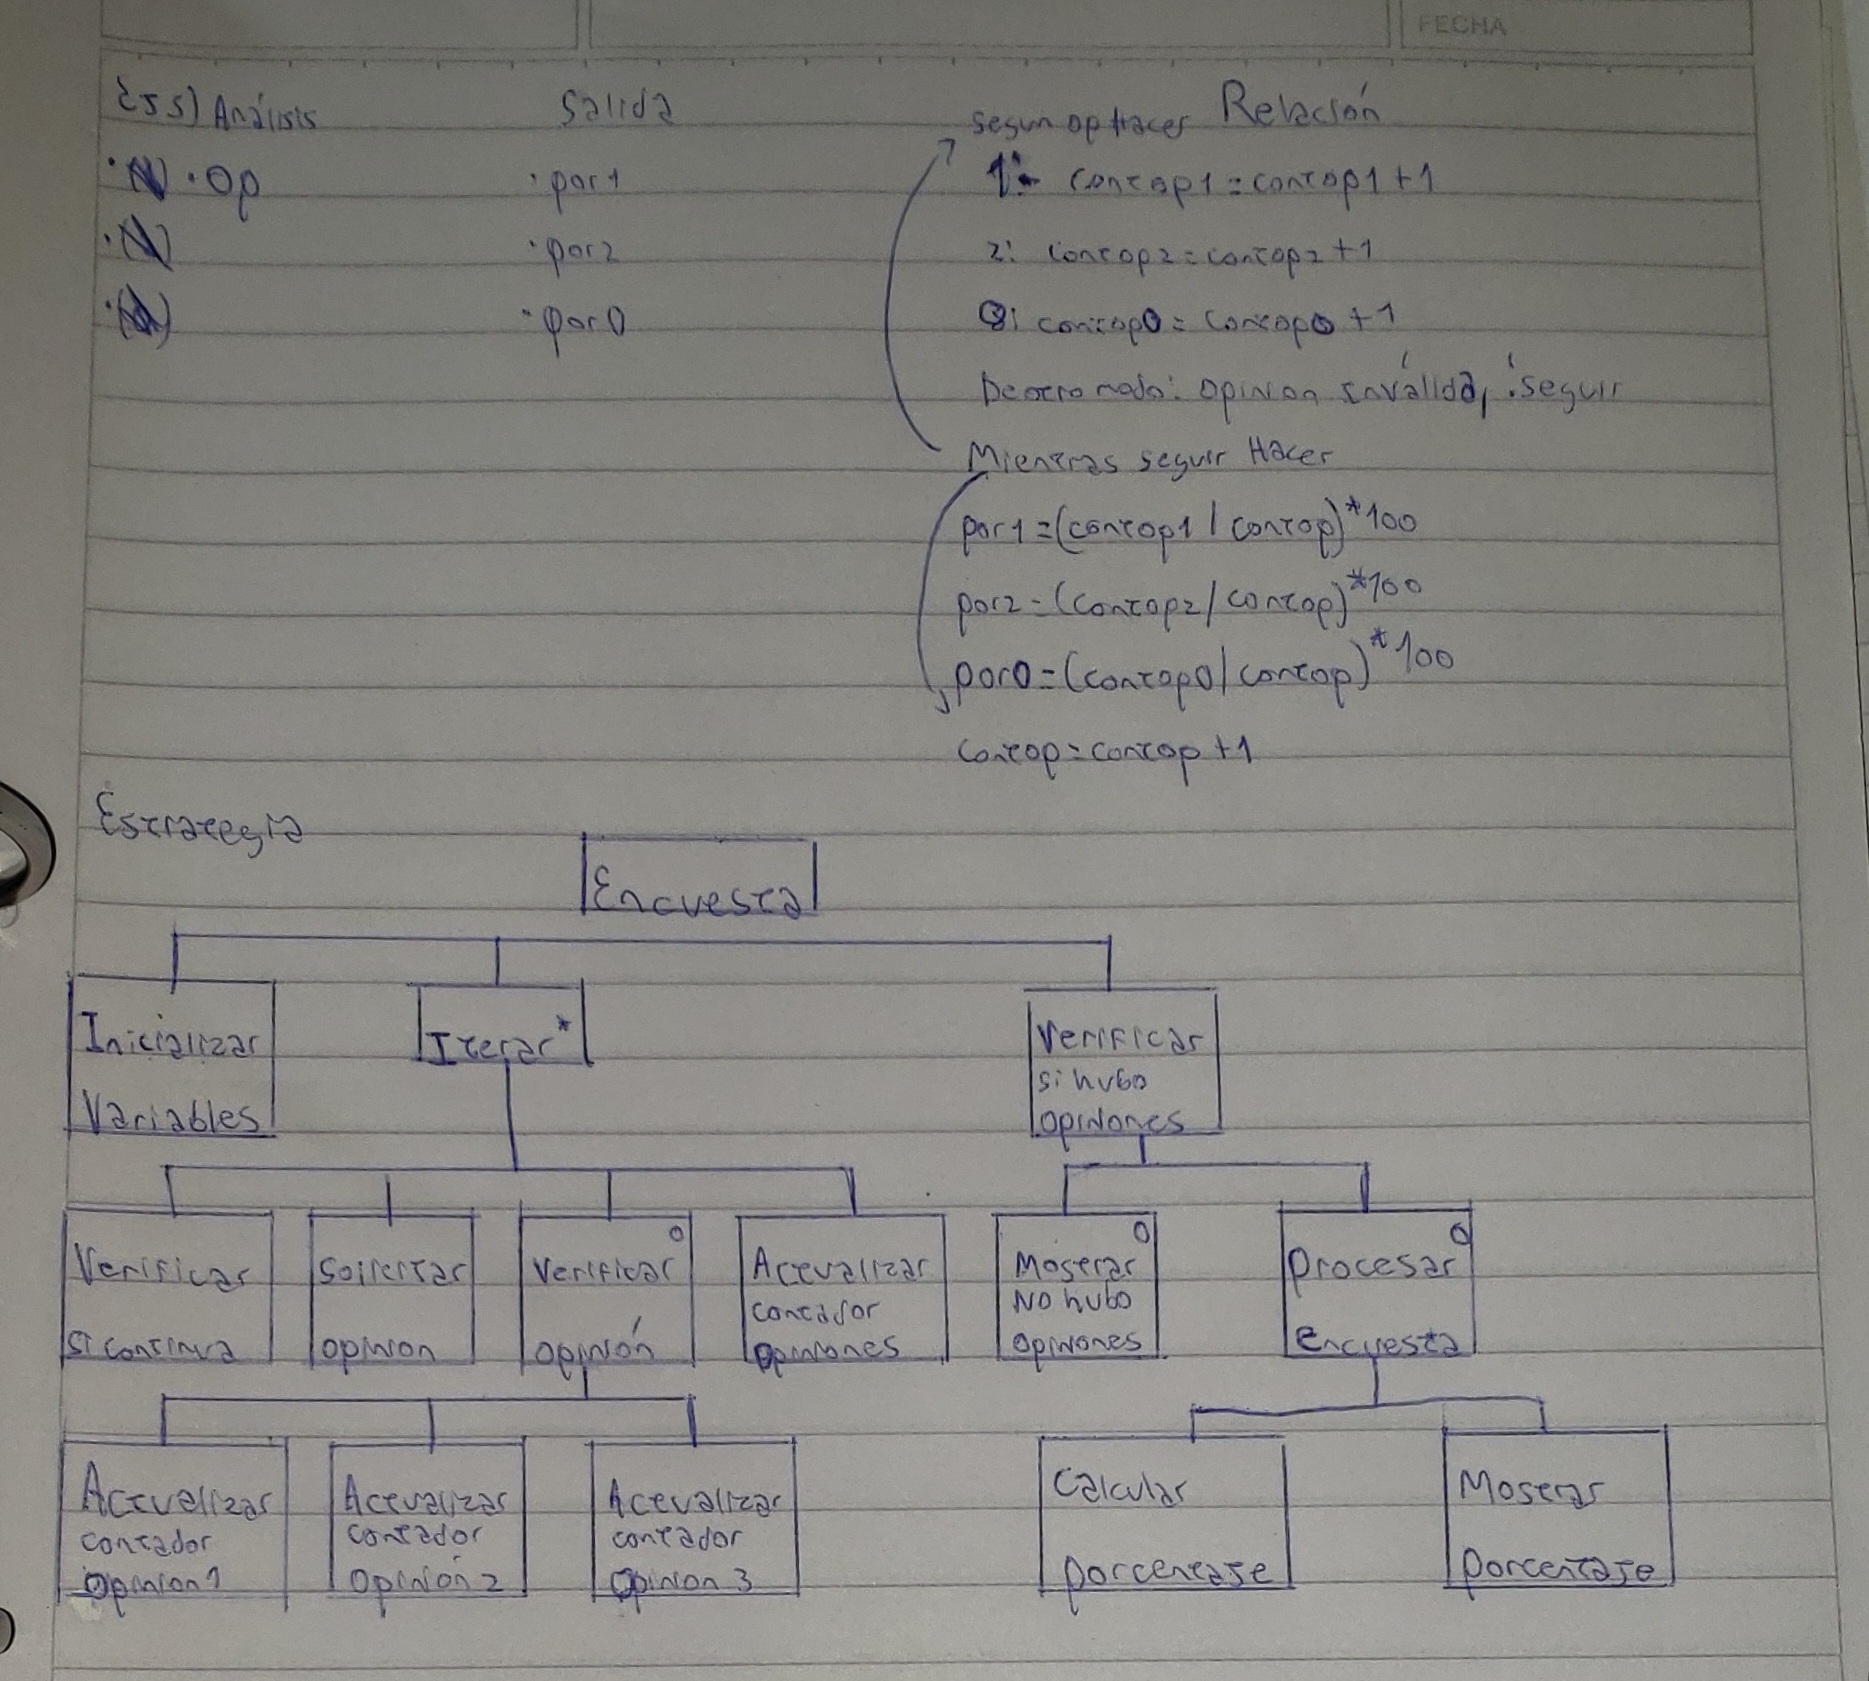 FECHA
EJ5) Análisis Salida Segun op Hacer Relación
· Op · por1 1: contop1 = contop1 + 1
· por2 2: contop2 = contop2 + 1
· por0 0: contop0 = contop0 + 1
De otro modo: opinion inválida, seguir
Mientras seguir Hacer
por1 = (contop1 / contop) * 100
por2 = (contop2 / contop) * 100
por0 = (contop0 / contop) * 100
contop = contop + 1
Estrategia
Encuesta
Inicializar
Variables
Iterar*
Verificar
si hubo
opiniones
Verificar
si continua
Solicitar
opinion
Verificar
opinión
Actualizar
contador
opiniones
Mostrar
No hubo
opiniones
Procesar
Encuesta
Actualizar
contador
opinion 1
Actualizar
contador
Opinión 2
Actualizar
contador
Opinion 3
Calcular
porcentaje
Mostrar
porcentaje